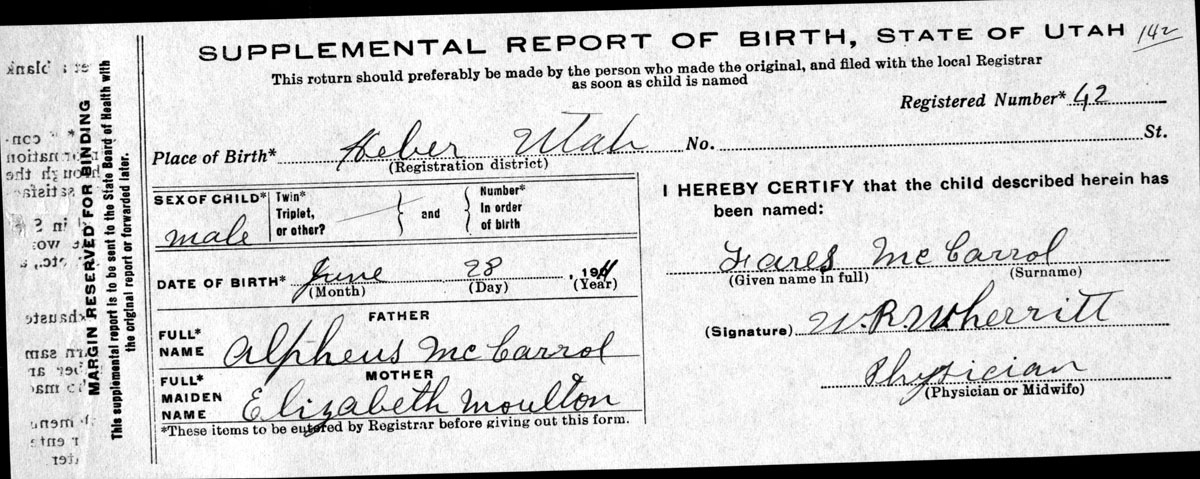 SUPPLEMENTAL REPORT OF BIRTH, STATE OF UTAH 142
This return should preferably be made by the person who made the original, and filed with the local Registrar
as soon as child is named
Registered Number* 42
Place of Birth* Heber Utah No. St.
(Registration district)
SEX OF CHILD* male
Twin*
Triplet,
or other?
and
Number*
In order
of birth
DATE OF BIRTH* June 28, 1914
(Month) (Day) (Year)
FATHER
FULL*
NAME Alpheus McCarrol
MOTHER
FULL*
MAIDEN
NAME Elizabeth Moulton
*These items to be entered by Registrar before giving out this form.
I HEREBY CERTIFY that the child described herein has
been named:
Fares McCarrol
(Given name in full) (Surname)
(Signature) W.R. Wherritt
Physician
(Physician or Midwife)
MARGIN RESERVED FOR BINDING
This supplemental report is to be sent to the State Board of Health with
the original report or forwarded later.